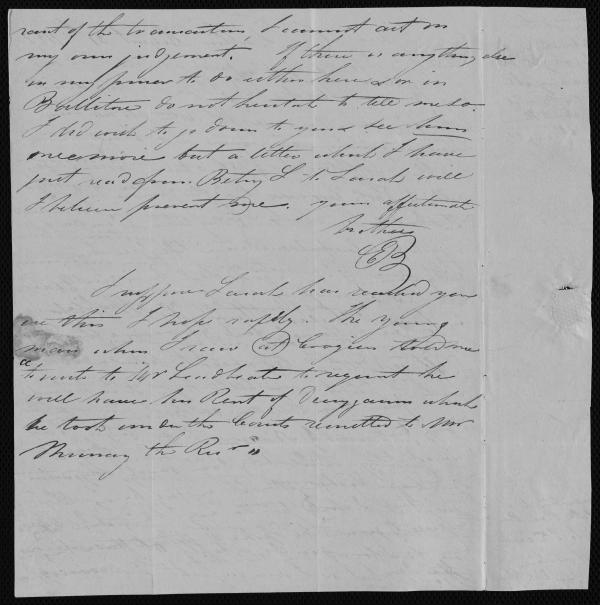 rant of the transaction, I cannot act on
my own judgement. If there is anything else
in my power to do either here or in
Ballitore do not hesitate to tell me so.
I did wish to go down to you & see him
once more but a letter which I have
just read from Betsy L to Sarah will
I believe prevent me. yours affectionate
brother
EB
I suppose Sarah has reached you
ere this I hope safely. The young
man whom I saw at told me
to write to Mr to request he
will have his Rent of which
he took under the Courts remitted to Mr
Murray the Recr